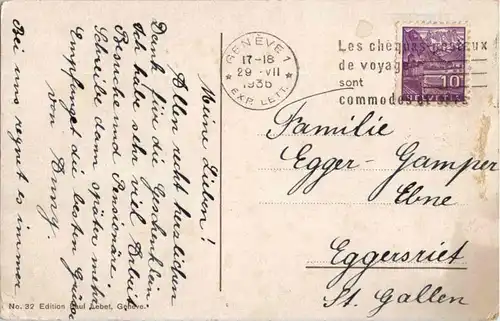 Meine Lieben!
Allen recht herzlichen
Dank für die Geschenklein
Ich habe sehr viel Arbeit
Besuche und Pensionäre
Schreibe dann später mehr
Empfanget die besten Grüsse
von
Bei uns regnet es immer
GENÈVE 1
17-18
29-VII
1936
EXP. LETT.
Les chèques postaux
de voyage
sont
commodes et sûrs
10
Familie
Egger-Gamper
Ebne
Eggersriet
St. Gallen
No. 32 Edition Paul Lebet, Genève.